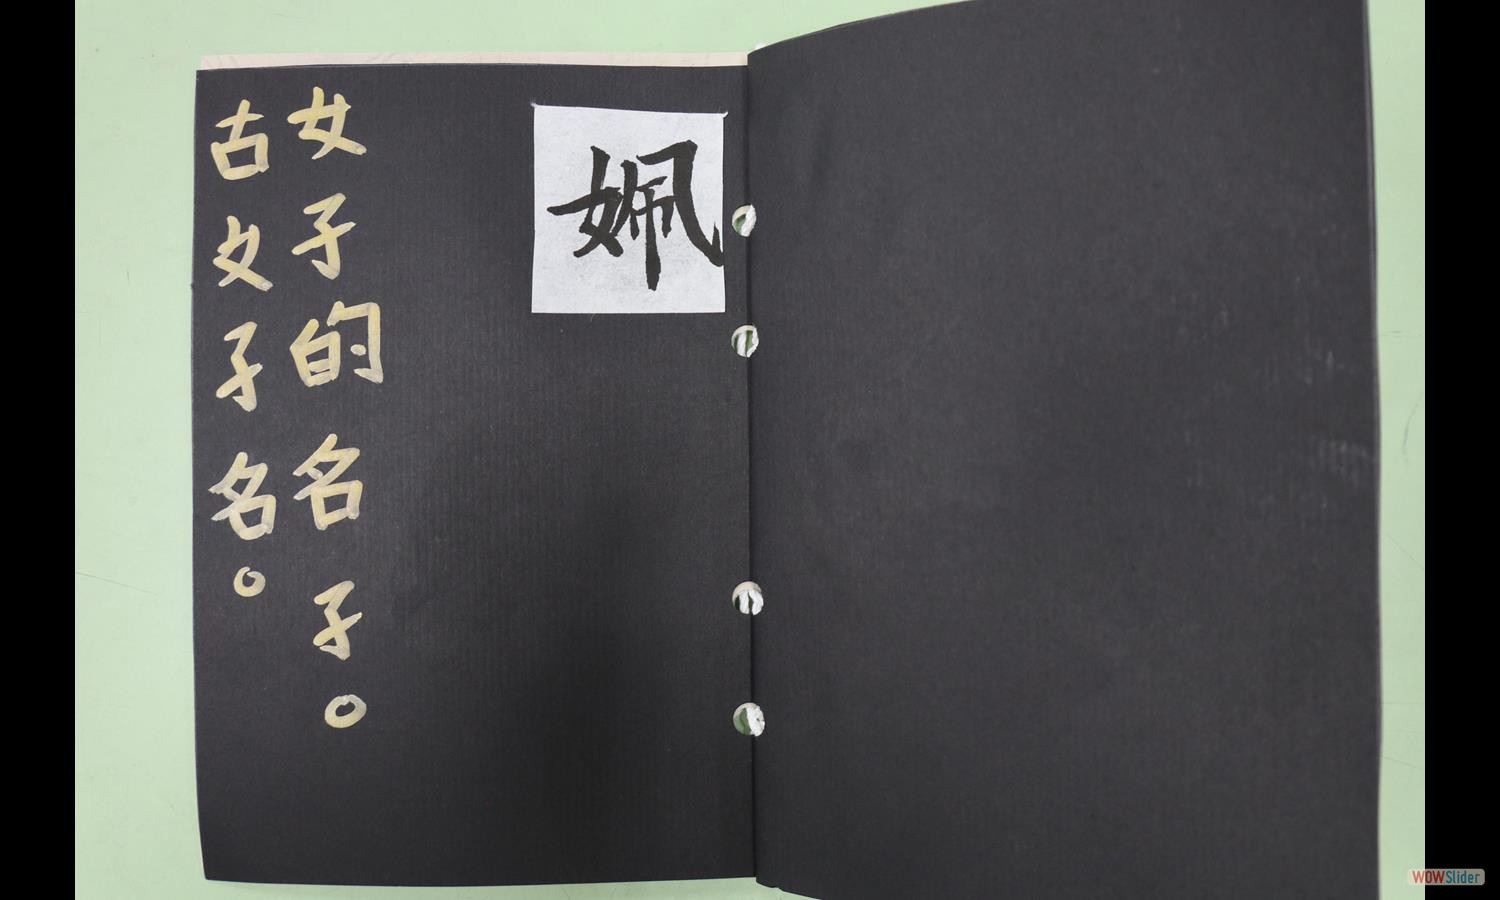 姵
女子的名子。
古文子名。
WOWSlider